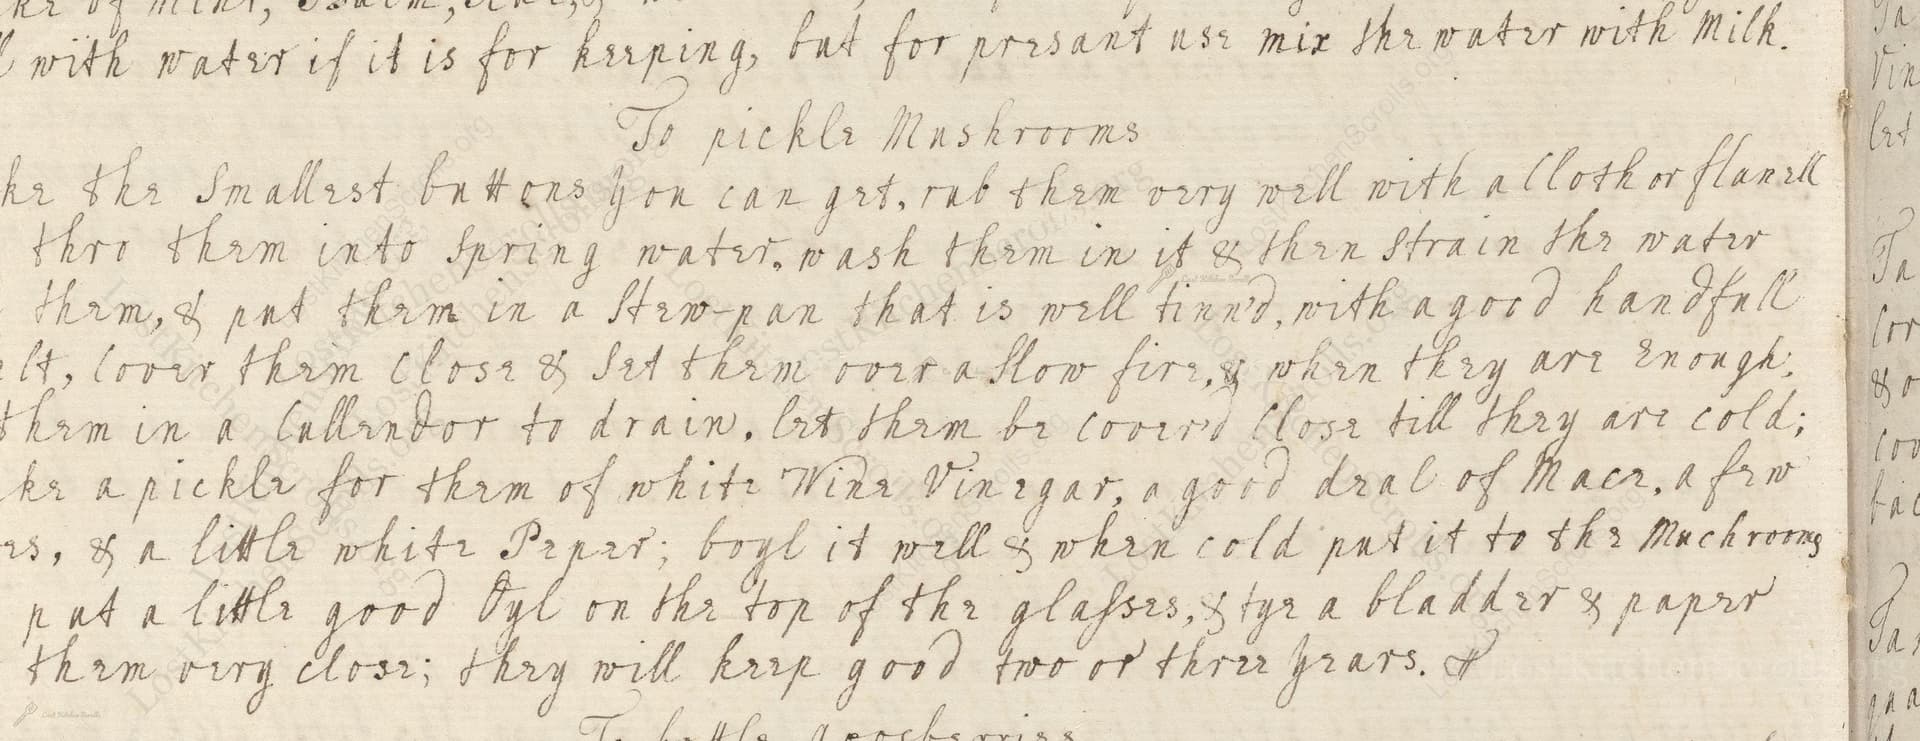 with water if it is for keeping, but for presant use mix the water with Milk.
To pickle Mushrooms
ke the Smallest buttons you can get, rub them very well with a Cloth or flanell
thro them into Spring water, wash them in it & then Strain the water
them, & put them in a Stew-pan that is well tinn'd, with a good handfull
elt, Cover them Close & Set them over a Slow fire, & when they are Enough;
them in a Cullendor to drain, let them be cover'd Close till they are cold;
ke a pickle for them of white Wine Vinegar, a good deal of Mace, a few
es, & a little white Peper; boyl it well & when cold put it to the Muchrooms
put a little good Oyl on the top of the glasses, & tye a bladder & paper
them very close; they will keep good two or three years.
To bottle goosberries